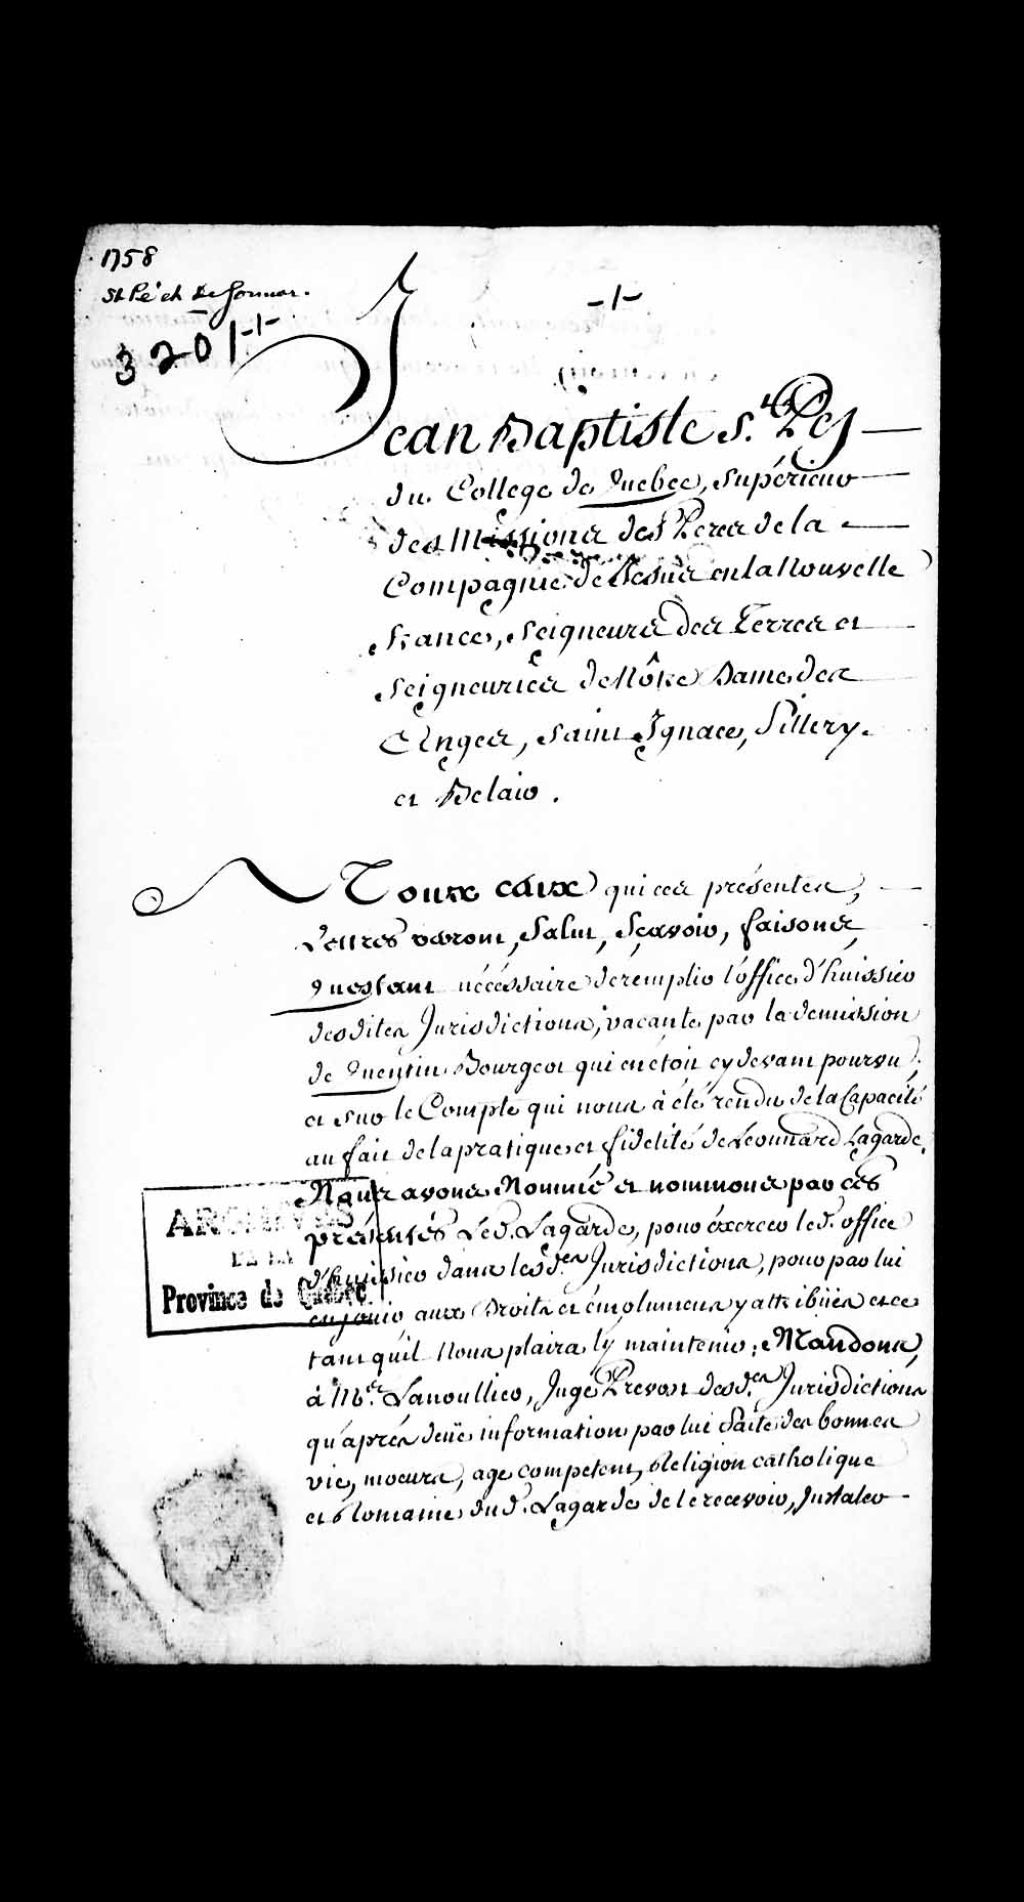 1758
St Pé et
3201-1-
-1-
Jean Baptiste S.t Pey
du College de Quebec, supérieur
des Missions des Peres de la
Compagnie de Jesus en la Nouvelle
france, seigneurs des Terres et
seigneuries de Nôtre Dame des
Anges, saint Ignace, Sillery
et Belair.
Toux ceux qui ces présentes
Lettres veront, Salut, Sçavoir, faisons
Questant nécéssaire de remplir l'office d'huissier
desdites Jurisdictions, vacante par la demission
de Quentin Bourgeot qui en étoit cy devant pourvu,
et sur le Compte qui nous à été rendu de la Capacité
au fait de la pratique et fidelité de Leonnard Lagarde.
Nous avons Nommé et nommons par ces
présentes Led. Lagarde, pour éxercer led. office
d'huissier dans lesd.es Jurisdictions, pour par lui
en jouir aux Droits et émolumens y attribües et ce
tant qu'il Nous plaira ly maintenir; Mandons,
à M.e Lanoullier, Juge Prevost desd.es Jurisdictions
qu'aprés deüe information par lui faite des bonnes
vie, moeurs, age competent, Religion catholique
et Romaine dud. Lagarde de le recevoir, Instaler
ARCHIVES
DE LA
Province de Québec